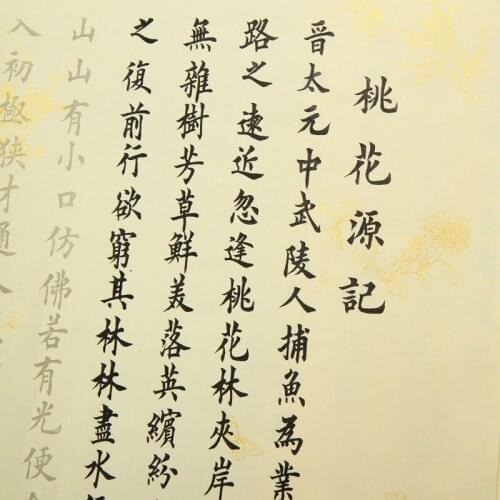 桃花源記
晉太元中武陵人捕魚為業
路之遠近忽逢桃花林夾岸
無雜樹芳草鮮美落英繽紛
之復前行欲窮其林林盡水
山山有小口仿佛若有光便
入初極狹才通人